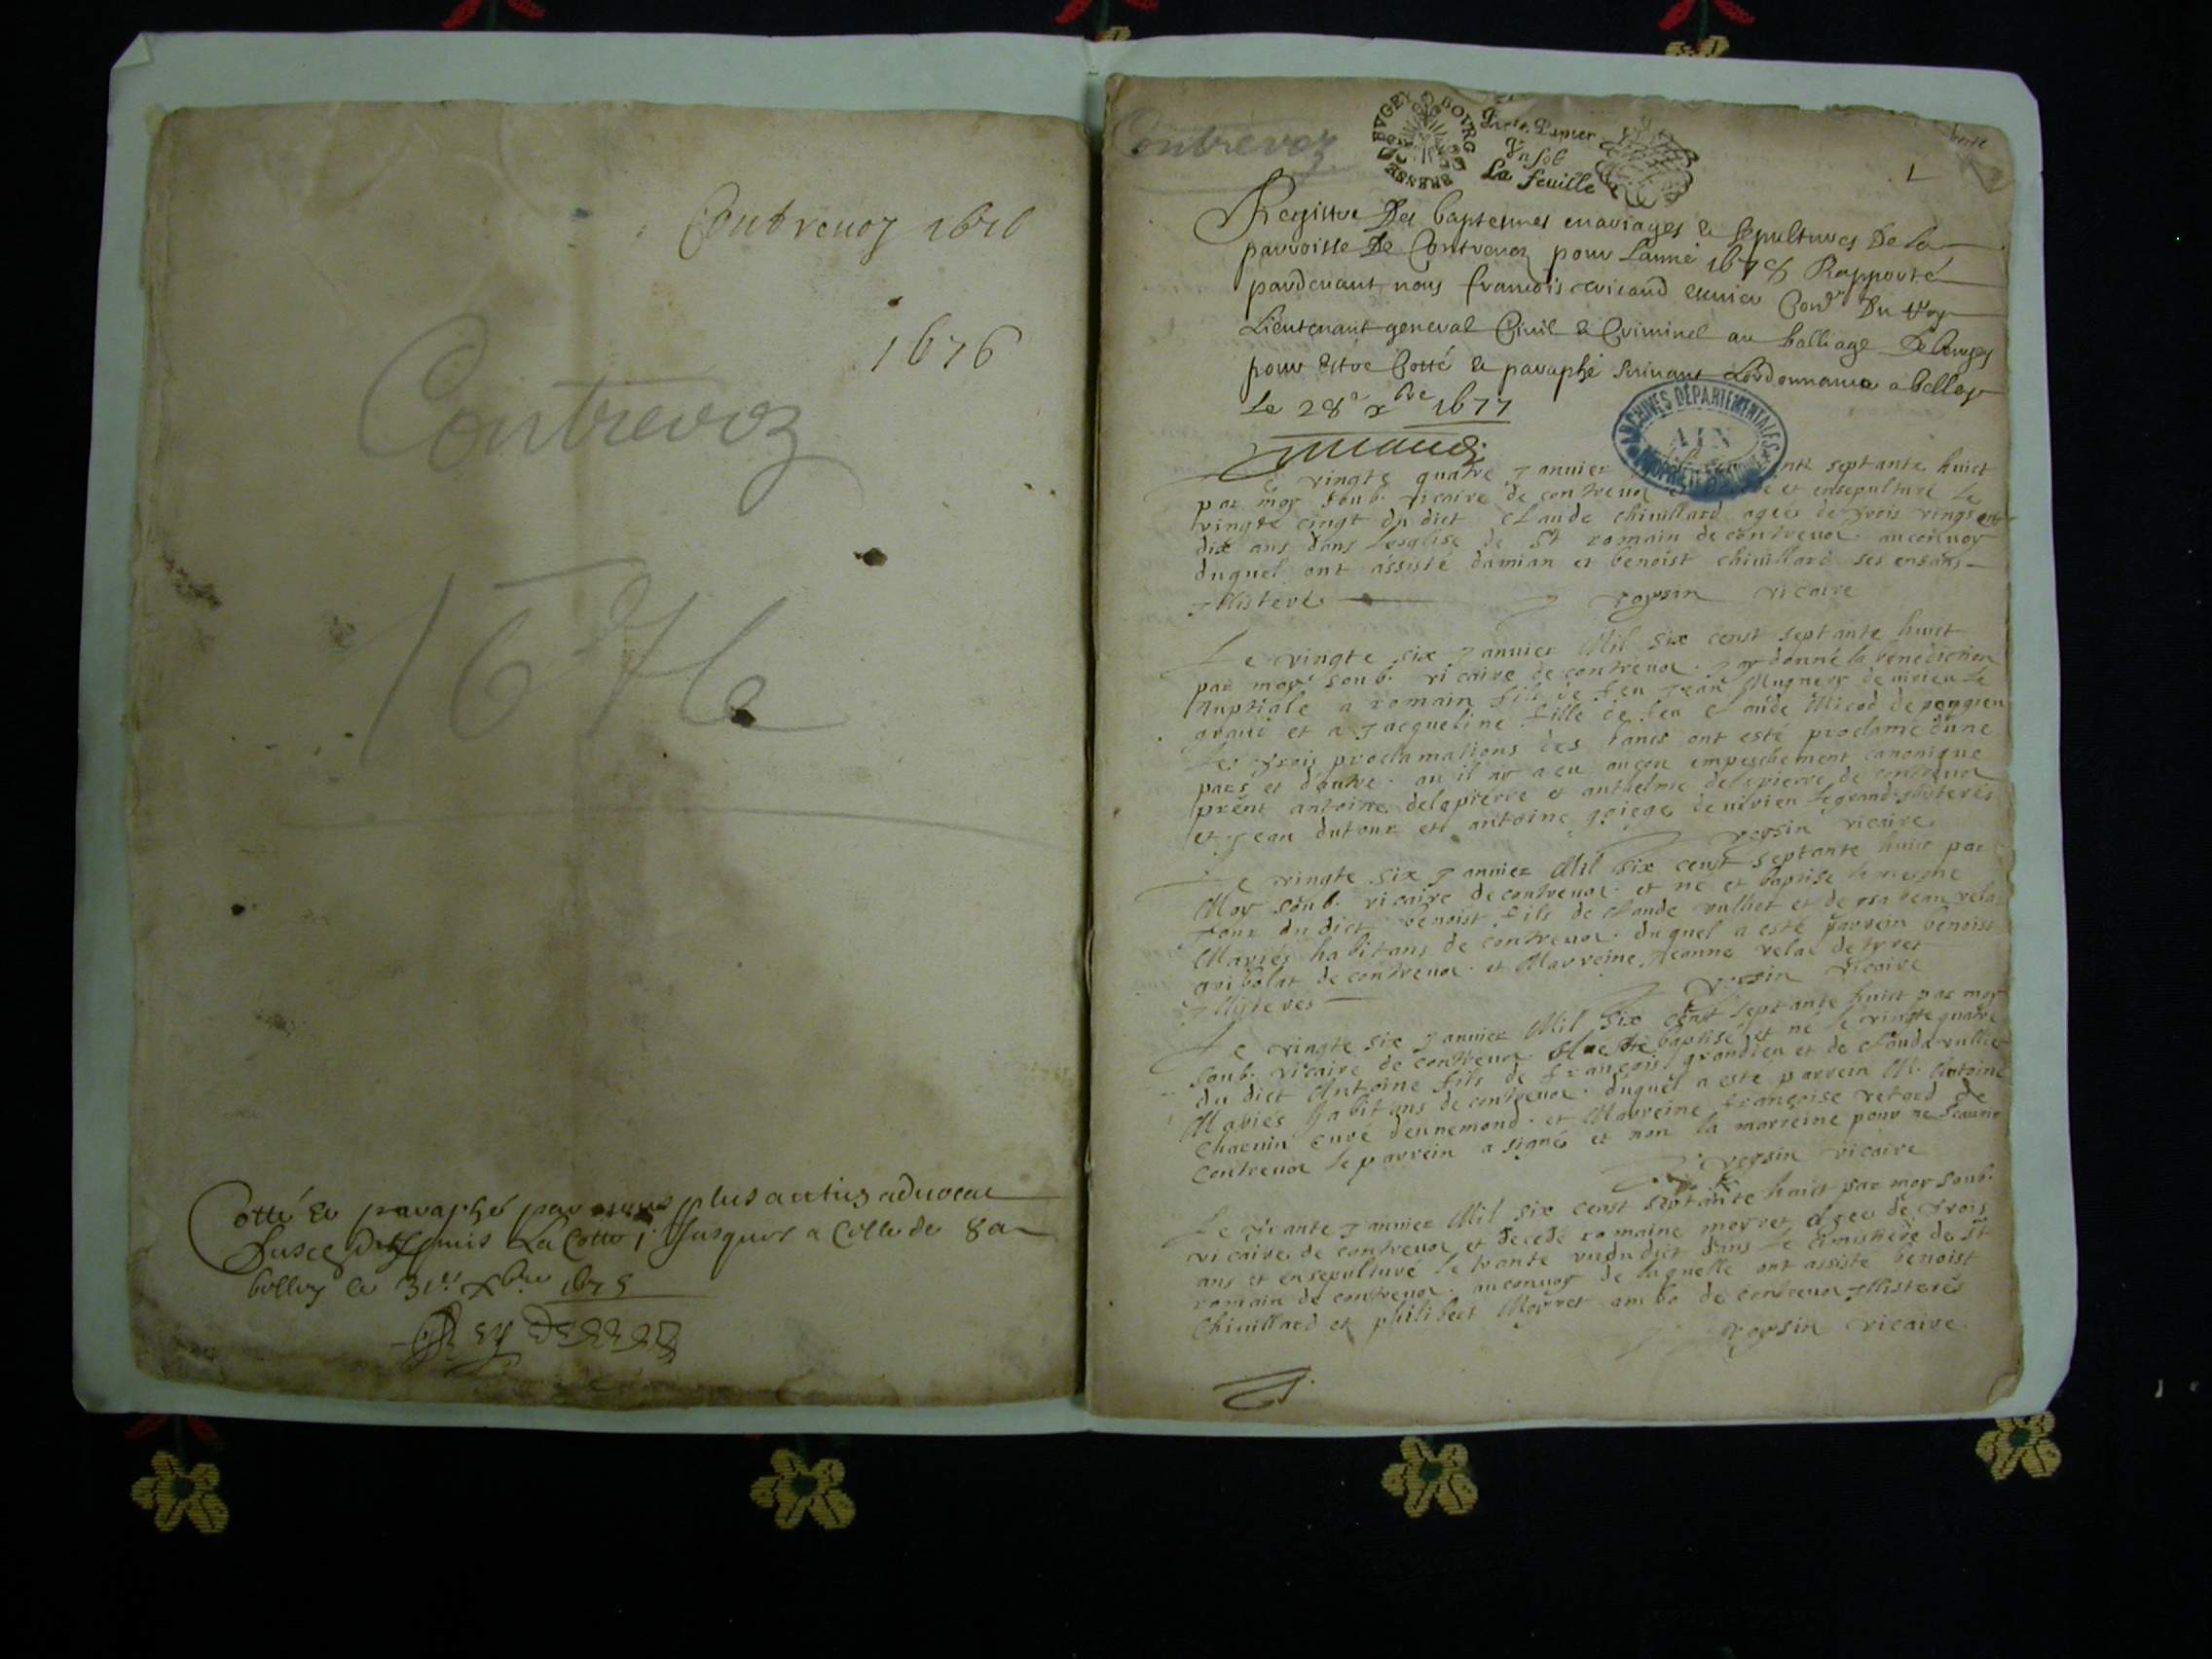 Contrevoz 1676
1676
Contrevoz
1676
Cotté et paraphé par nous plus antien advocat
depuis La Cotte 1 Jusques a Cotte de 8
belley le 31e xbre 1675
Contrevoz
BVGEY BOVRG BRESSE
Petit Papier
Un sol
La feuille
1
Registre Des baptesmes mariages & sepultures De La
parroisse De Contrevoz pour Lanné 1678 Rapporté
pardevant nous francois escuier Conser Du Roy
Lieutenant general Civil & Criminel au balliage De bugey
pour Estre Cotté & paraphé suivant Lordonnance a belley
Le 28e xbre 1677
ARCHIVES DÉPARTEMENTALES
AIN
PROPRIÉTÉ PUBLIQUE
Le vingte quatre Janvier septante huict
par moy soub. vicaire de contrevoz et ensepulturé le
vingte cinqt du dict Claude chivillard ageé de trois vingt et
dix ans dans lesglise de St romain de contrevoz. au convoy
duquel ont assisté damian et benoist chivillard ses enfans
Illisteres voysin vicaire
Le vingte six Janvier Mil six cent septante huict
par moy soub. vicaire de contrevoz. Jay donné la benediction
Nuptiale a romain fils de feu Jean Mugnery de virieu le
grand et a Jacqueline fille de feu Claude Micod de peyzieu
les trois proclamations des bancs ont esté proclamé dune
part et dautre. ou il ny a eu aucun empeschement canonique
prent antoine delapierre et anthelme delapierre de contrevoz
et Jean dutour et antoine de virieu le grand Illisteres
voysin vicaire
Le vingte six Janvier Mil six cent septante huict par
Moy soub. vicaire de contrevoz. et né et baptisé le mesme
Jour du dict benoist fils de Claude vulliet et de ysabeau velat
Mariés habitans de contrevoz. duquel a esté parrein benoist
gribolat de contrevoz. et Marreine Jeanne velat
Illisteres voysin vicaire
Le vingte six Janvier Mil six cent septante huict par moy
soub. vicaire de contrevoz a esté baptisé et né le vingte quatre
du dict Antoine fils de françois grandieu et de Claude vulliet
Mariés habitans de contrevoz. duquel a esté parrein M. Antoine
Chaenin curé dennemond. et Marreine françoise retord de
contrevoz le parrein a signé et non la marreine pour ne scavoir
voysin vicaire
Le trante Janvier Mil six cent septante huict par moy soub.
vicaire de contrevoz et decedé romaine morret ageé de trois
ans et ensepulturé le trante un du dict dans le cimistière de St
romain de contrevoz. au convoy de laquelle ont assisté benoist
Chivillard et philibert Morret ambo de contrevoz Illisterés
voysin vicaire